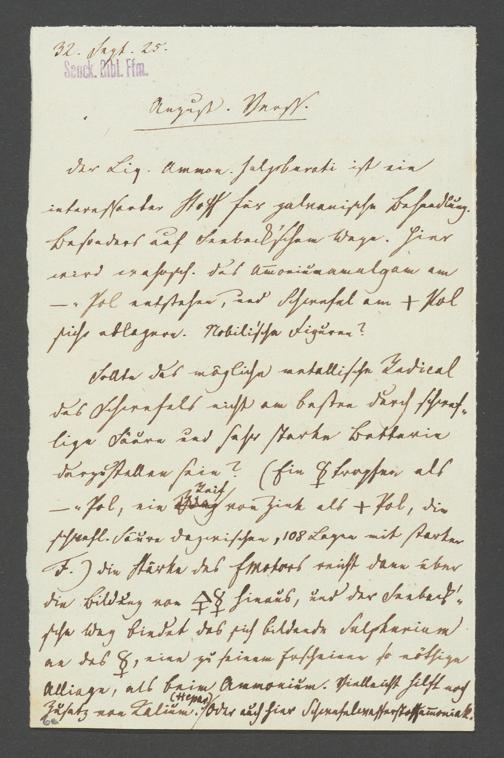 32. Sept. 25.
Senck. Bibl. Ffm.
August. Vers.
Der Liq. Ammon. sulphurati ist ein
interessanter Stoff für galvanische Behandlung.
Besonders auf Seebeck'schem Wege. Hier
wird wahrsch. das Ammoniumamalgam am
— Pol entstehen, und Schwefel am + Pol
sich ablagern. Nobilische Figuren?
Sollte das mögliche metallische Radical
des Schwefels nicht am besten durch schwef-
lige Säure und sehr starke Batterie
darzustellen sein? (Ein ☿ tropfen als
— Pol, ein von Zink als + Pol, die
schwefl. Säure dazwischen, 108 Lagen mit starker
F.) die Stärke des Emotors reicht dann über
die Bildung von hinaus, und der Seebeck'-
sche Weg bindet das sich bildende Sulphurium
an das ☿, eine zu seinem Erscheinen so nöthige
Alliage, als beim Ammonium. Vielleicht hilft noch
Zusatz von Kalium. (Hepar) Oder auch hier Schwefelwasserstoffammoniak.